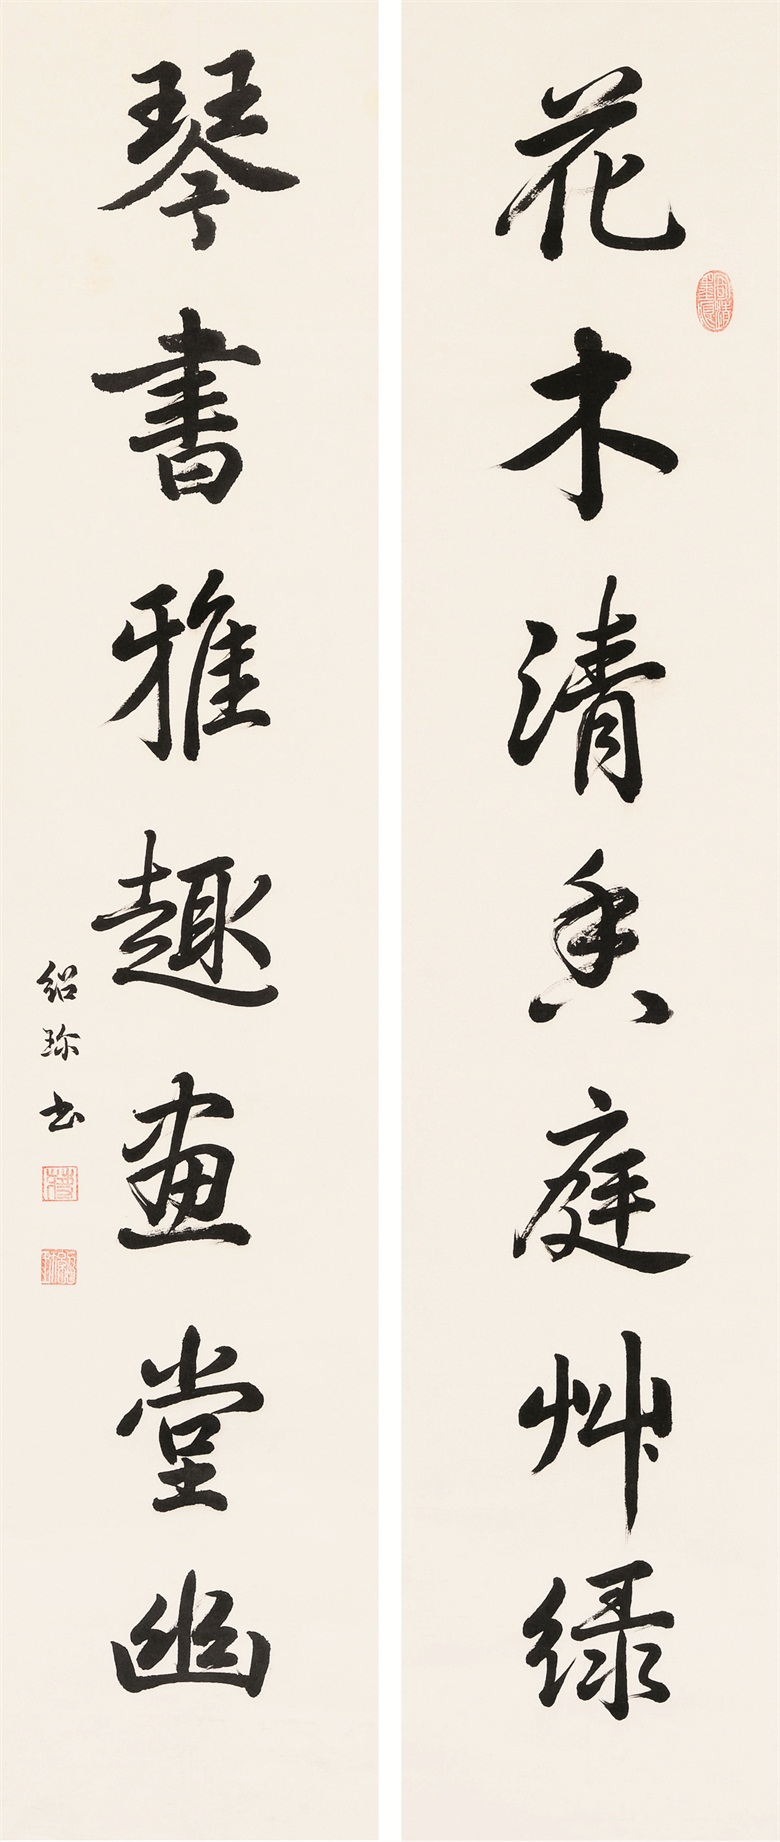 花木清香庭艸綠
琴書雅趣畫堂幽
紹珎書